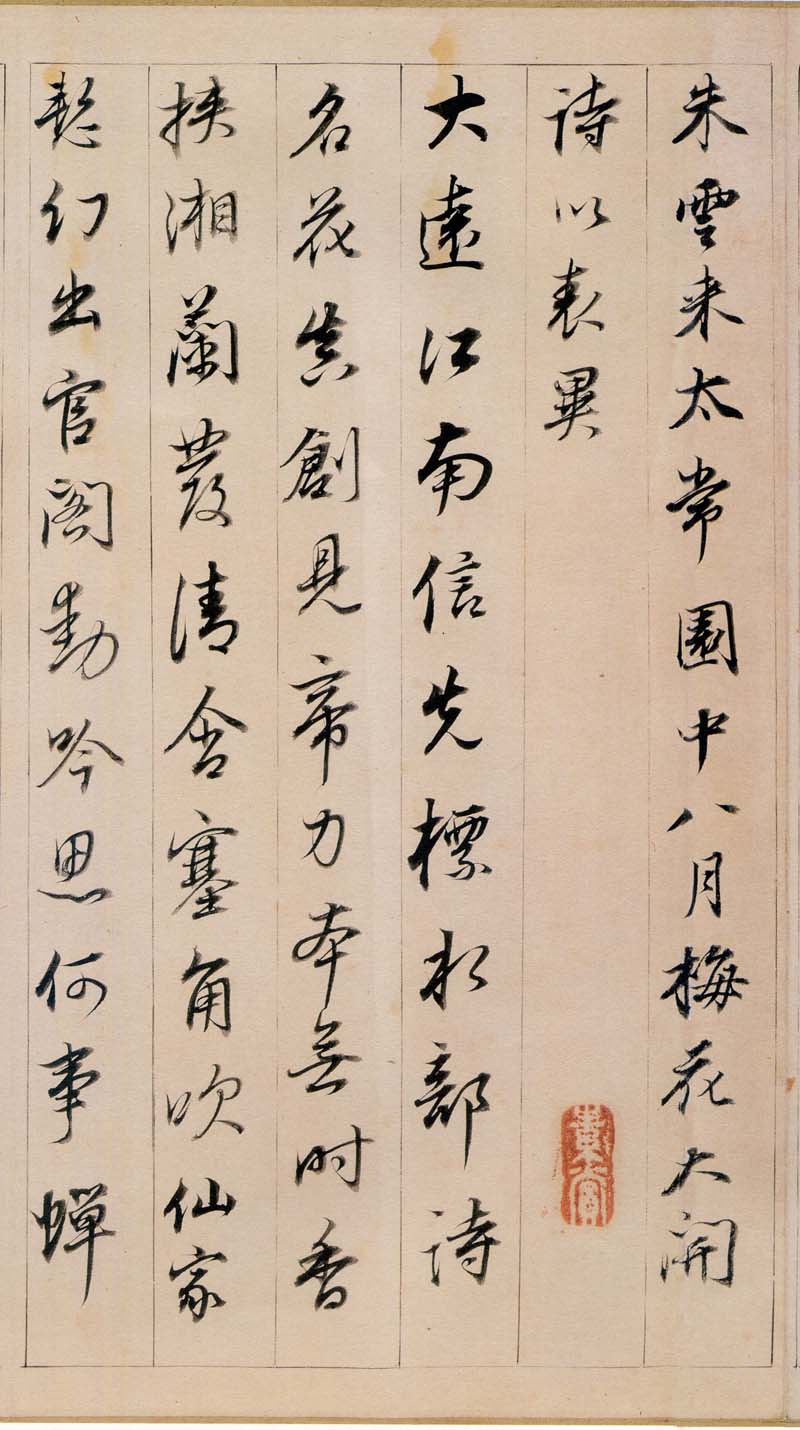 朱雲来太常園中八月梅花大開
詩以表異
大遠江南信先標水部詩
名花真創見帝力本無时香
挟湘蘭發清含塞角吹仙家
幻出官阁動吟思何事蟬